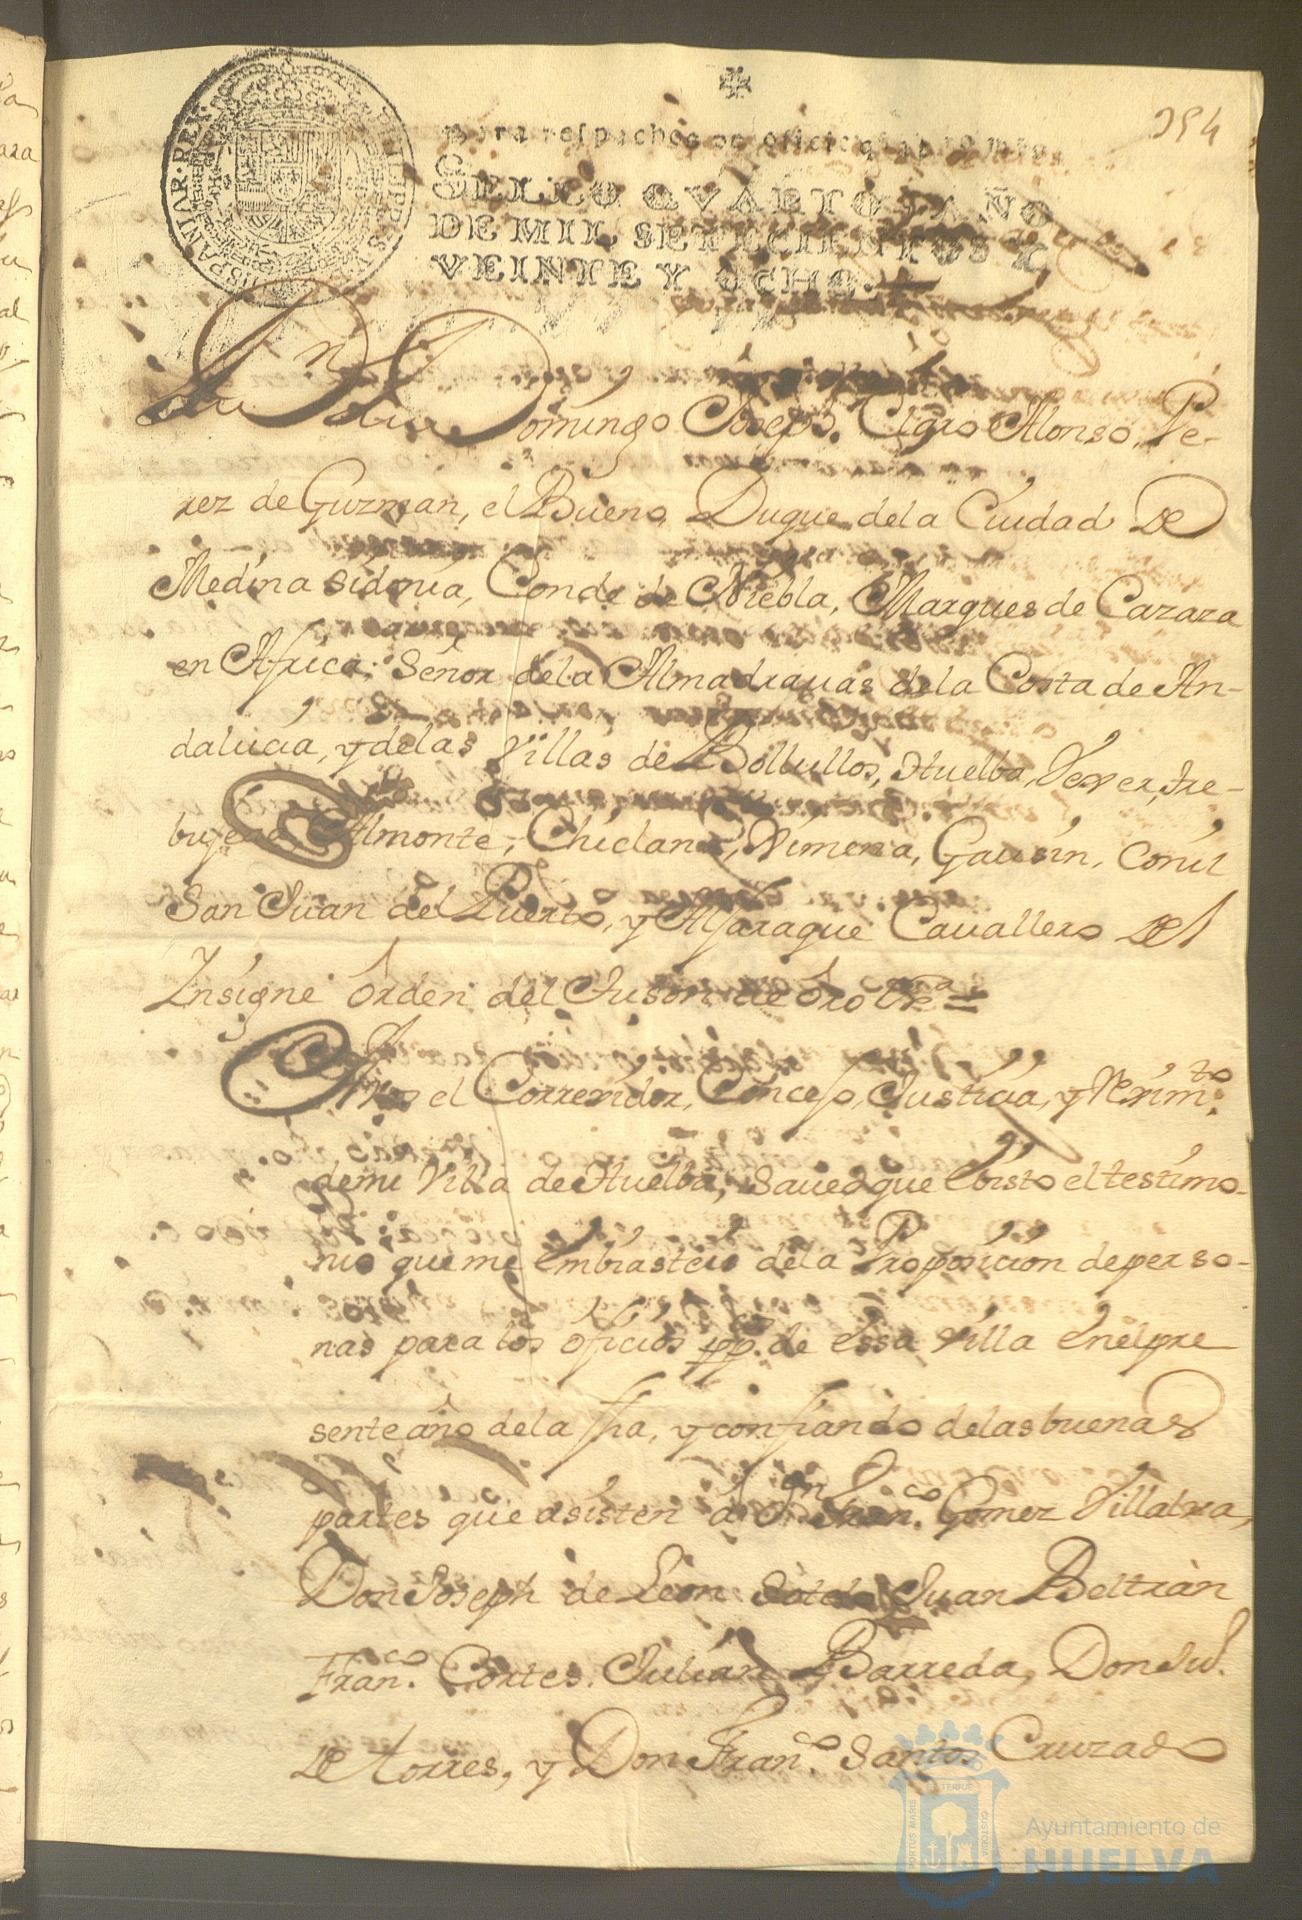 354
Para despachos de oficio quatro mrs.
SELLO QVARTO, AÑO
DE MIL SETECIENTOS Y
VEINTE Y OCHO.
HISPANIAR. REX. PHILIPPUS V
Dn Domingo Joseph. Claro Alonso, Pe-
rez de Guzman, el Bueno, Duque dela Ciudad de
Medina sidonia, Conde de Niebla, Marques de Cazaza
en Africa; Señor dela Almadrauas dela Costa de An-
dalucia, y delas Villas de Bollullos, Huelba, Vexer, Tre-
bugena, Almonte, Chiclana, Ximena, Gausin, Conil
San Juan del Puerto, y Aljaraque Cauallero del
Insigne orden del Tuson de oro &ra =
A Vos el Corregidor, Concejo, Justicia, y Regim.to
demi Villa de Huelba, Saued que e bisto el testimo-
nio que me embiasteis dela Proposicion de perso-
nas para los oficios pp.cos de essa Villa en el pre
sente año dela fha, y confiando delas buenas
partes que asisten a Dn Fran.co Gomez Villalva,
Don Joseph de Leon Sotelo Juan Beltran
Fran.co Cortes. Julian Barreda, Don Ju.
de Torres, y Don Fran.co Santos Cruzado
PORTUS MARIS ET TERRAE CUSTODIA
Ayuntamiento de
HUELVA